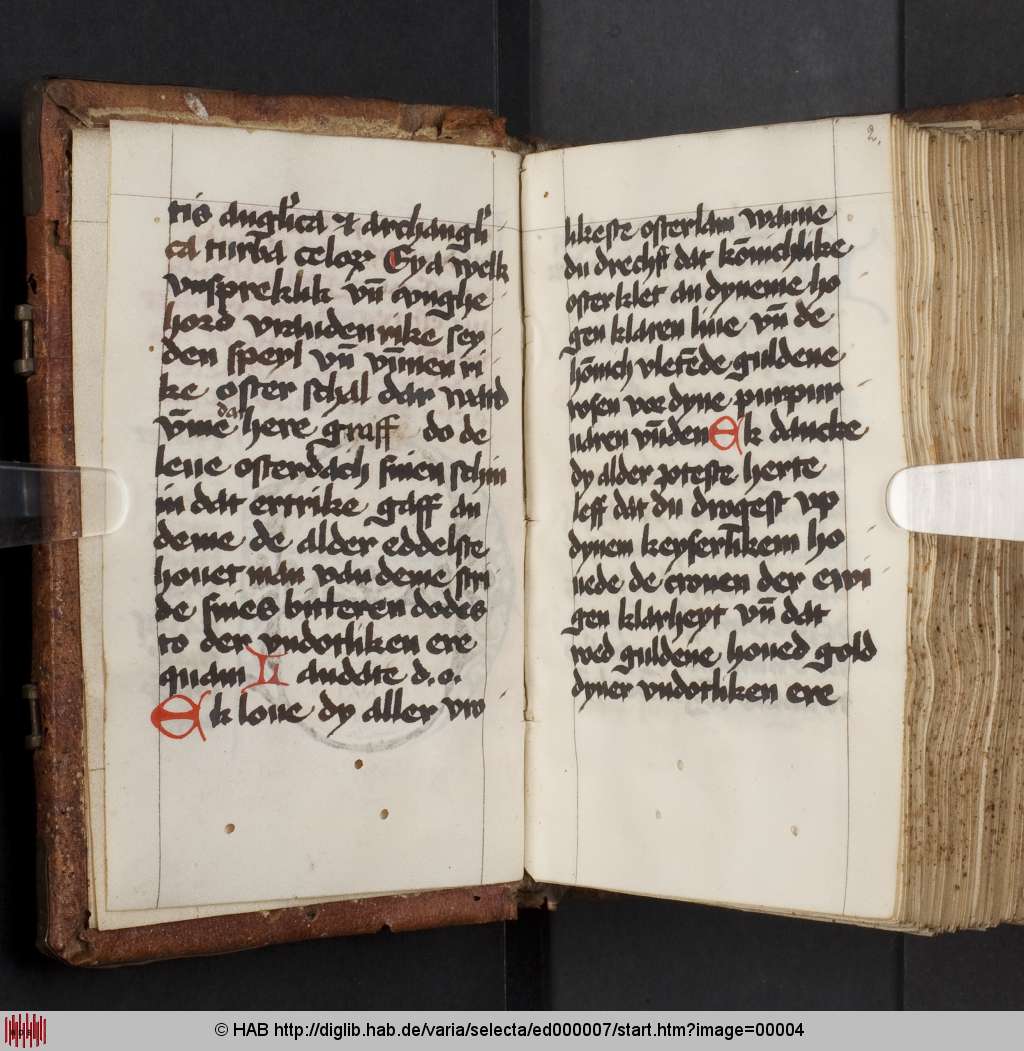 tis anglica et archangli
ca turba celor Eya welk
vnspreklik vn̄ vnghe
hord vrauden rike sey
den speyl vn̄ vm̄men ri
ke oster schal dar ward
vm̄me
dat
here graff do de
leue osterdach sinen schin
in dat ertrike gaff an
deme de alder eddelste
houet man van deme stri
de sines bitteren dodes
to der vndotliken ere
quam Laudate d. o.
Ek loue dy aller vro
2,
likeste osterlam wanne
du drechst dat kōnichlike
osterklet an dyneme ho
gen klaren liue vn̄ de
hōnich vletēde guldene
rosen vor dyne purpur
varen vn̄den Ek dancke
dy alder zoteste herte
leff dat du drogest vp
dynem keyserlikem ho
uede de cronen der ewi
gen klarheyt vn̄ dat
rod guldene houed gold
dyner vndotliken ere
© HAB http://diglib.hab.de/varia/selecta/ed000007/start.htm?image=00004